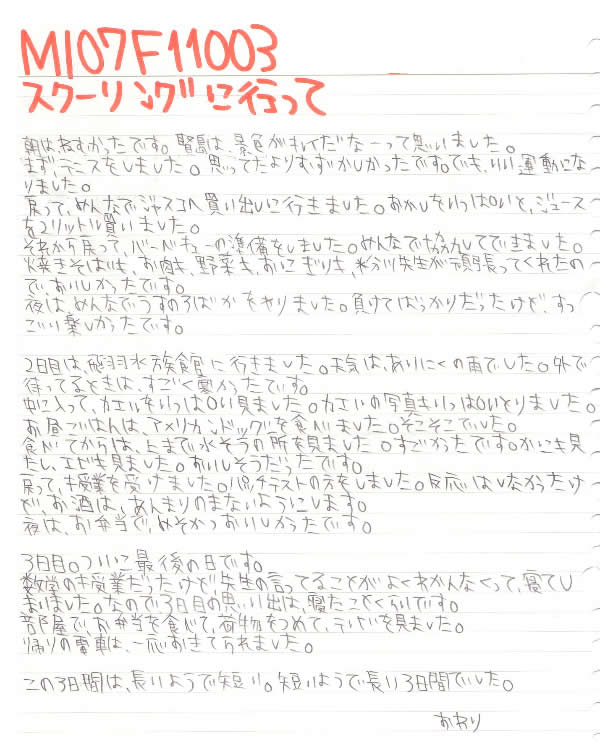 M107F11003
スクーリングに行って
朝はねむかったです。賢島は、景色がキレイだなーって思いました。
まず、テニスをしました。思ってたよりむずかしかったです。でも、いい運動にな
りました。
戻って、みんなでジャスコへ買い出しに行きました。おかしをいっぱいと、ジュース
を2リットル買いました。
それから戻って、バーベキューの準備をしました。みんなで協力してできました。
焼きそばも、お肉も、野菜も、おにぎりも、米分川先生が頑張ってくれたの
で、おいしかったです。
夜は、みんなでうすのろばかをやりました。負けてばっかりだったけど、すっ
ごい楽しかったです。
2日目は、鳥羽水族館に行きました。天気は、ありにくの雨でした。外で
待ってるときは、すごく寒かったです。
中に入って、カエルをいっぱい見ました。カエルの写真もいっぱいとりました。
お昼ごはんは、アメリカンドックを食べました。そこそこでした。
食べてからは、上まで水そうの所を見ました。すごかったです。かにも見
たし、エビも見ました。おいしそうだったです。
戻って、授業を受けました。パッチテストの方をしました。反応はしなかったけ
ど、お酒は、あんまりのまないようにします。
夜は、お弁当で、みそかつおいしかったです。
3日目。ついに最後の日です。
数学の授業だったけど、先生の言ってることがよくわかんなくって、寝てし
まいました。なので3日目の思い出は、寝たことくらいです。
部屋で、お弁当を食べて、荷物をつめて、テレビを見ました。
帰りの電車は、一応おきてられました。
この3日間は、長いようで短い。短いようで長い3日間でした。
かおり